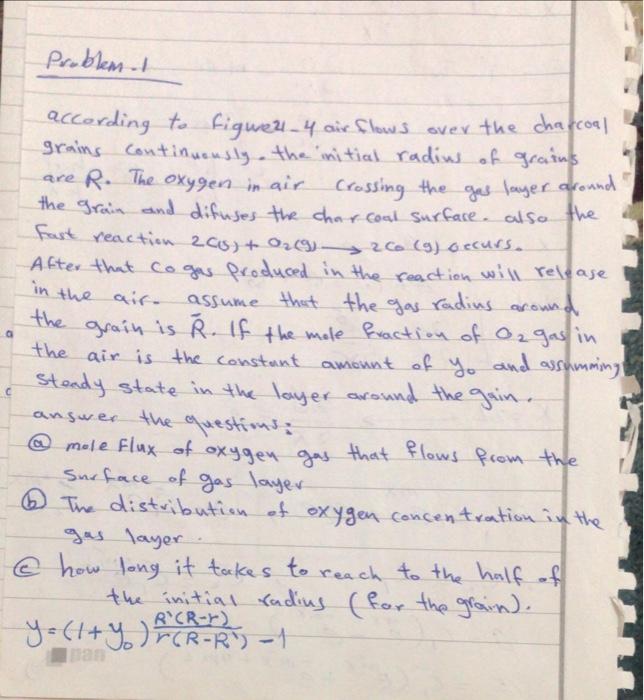 Problem-1
according to figure21-4 air flows over the charcoal
grains continuously. the initial radius of grains
are R. The oxygen in air crossing the gas layer around
the grain and difuses the charcoal surface. also the
fast reaction 2C(s) + O2(g) → 2CO (g) occurs.
After that CO gas produced in the reaction will release
in the air. assume that the gas radius around
the grain is R̄. If the mole fraction of O2 gas in
the air is the constant amount of y0 and assumming
steady state in the layer around the gain.
answer the questions:
(a) mole flux of oxygen gas that flows from the
surface of gas layer
(b) The distribution of oxygen concentration in the
gas layer.
(c) how long it takes to reach to the half of
the initial radius (for the grain).
y=(1+y0) R`(R-r)/r(R-R`) -1
pan